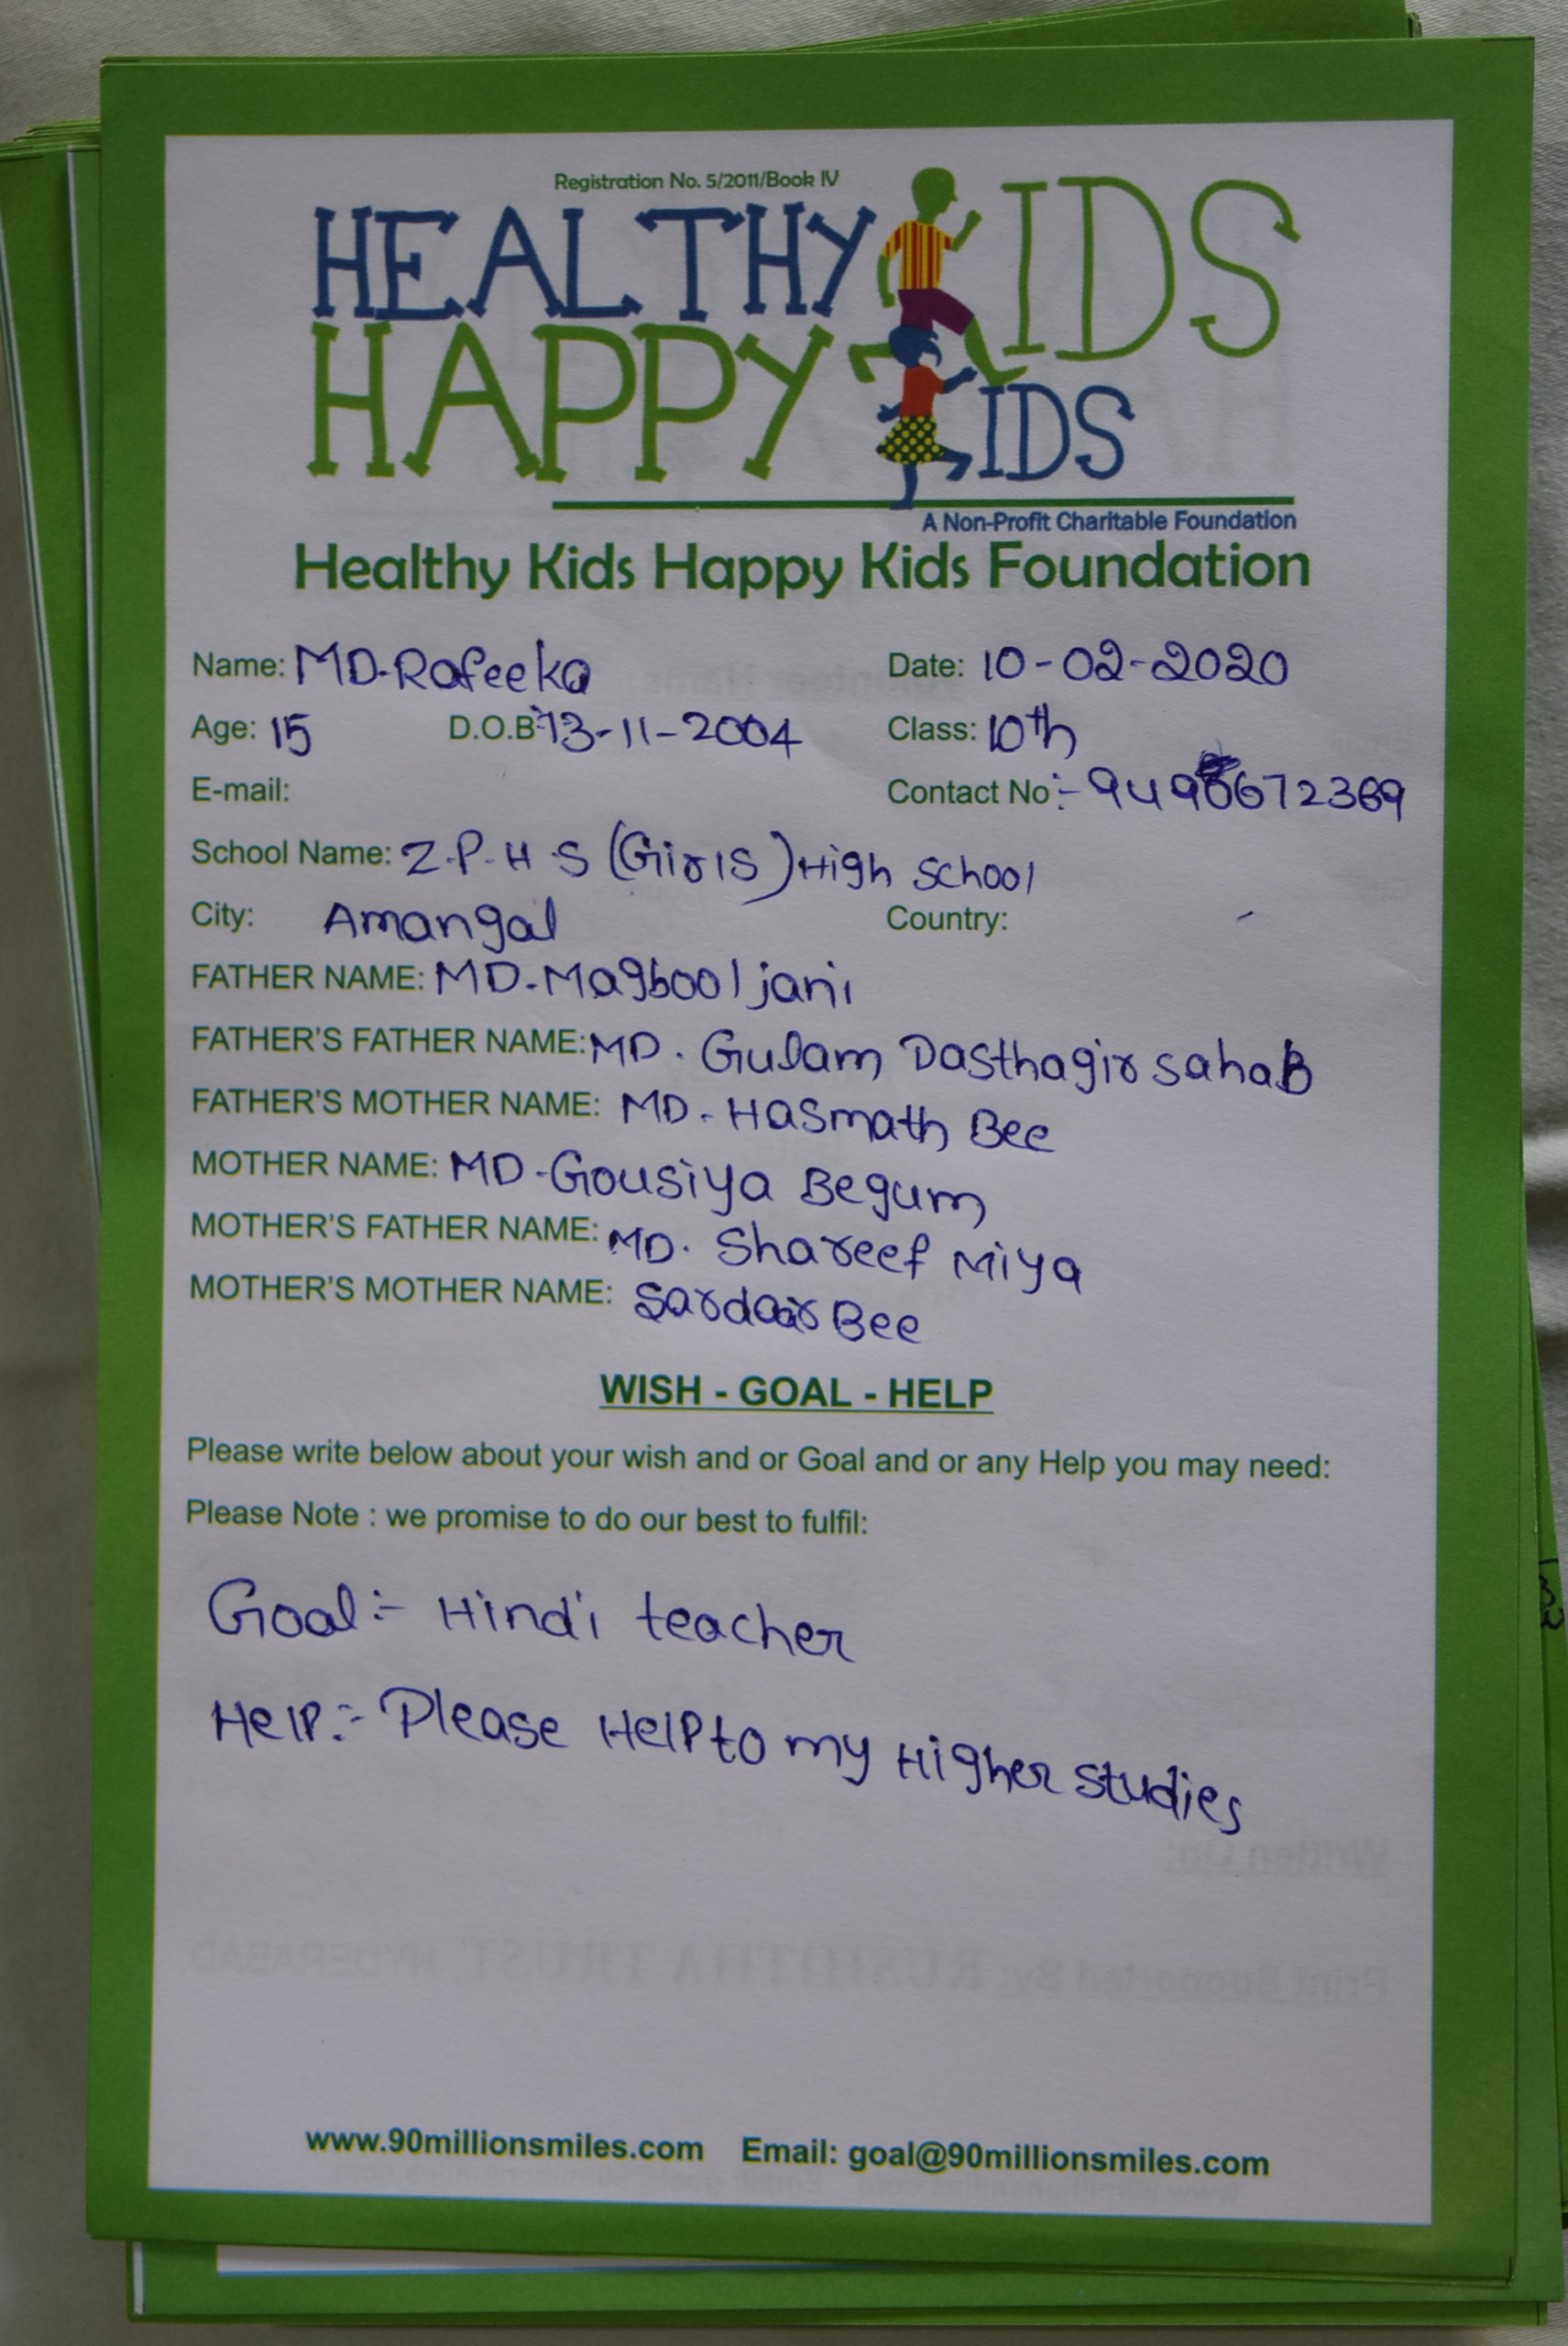 Registration No. 5/2011/Book IV
HEALTHY KIDS
HAPPY KIDS
A Non-Profit Charitable Foundation
Healthy Kids Happy Kids Foundation
Name: MD.Rafeeka Date: 10-02-2020
Age: 15 D.O.B: 13-11-2004 Class: 10th
E-mail: Contact No:-
School Name: Z.P.H.S (Girls) High School
City: Amangal Country:
FATHER NAME: MD.Maqbool jani
FATHER'S FATHER NAME: MD. Gulam Dasthagir sahaB
FATHER'S MOTHER NAME: MD. Hasmath Bee
MOTHER NAME: MD-Gousiya Begum
MOTHER'S FATHER NAME: MD. Shareef Miya
MOTHER'S MOTHER NAME: Sardar Bee
WISH - GOAL - HELP
Please write below about your wish and or Goal and or any Help you may need:
Please Note : we promise to do our best to fulfil:
Goal:- Hindi teacher
HelP:- Please HelP to my Higher studies
www.90millionsmiles.com Email: goal@90millionsmiles.com